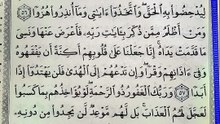 لِيُدْحِضُوا۟ بِهِ ٱلْحَقَّ وَٱتَّخَذُوٓا۟ ءَايَٰتِى وَمَآ أُنذِرُوا۟ هُزُوًا
٥٦ وَمَنْ أَظْلَمُ مِمَّن ذُكِّرَ بِـَٔايَٰتِ رَبِّهِۦ فَأَعْرَضَ عَنْهَا وَنَسِىَ
مَا قَدَّمَتْ يَدَاهُ إِنَّا جَعَلْنَا عَلَىٰ قُلُوبِهِمْ أَكِنَّةً أَن يَفْقَهُوهُ
وَفِىٓ ءَاذَانِهِمْ وَقْرًا وَإِن تَدْعُهُمْ إِلَى ٱلْهُدَىٰ فَلَن يَهْتَدُوٓا۟ إِذًا
أَبَدًا ٥٧ وَرَبُّكَ ٱلْغَفُورُ ذُو ٱلرَّحْمَةِ لَوْ يُؤَاخِذُهُم بِمَا كَسَبُوا۟
لَعَجَّلَ لَهُمُ ٱلْعَذَابَ بَل لَّهُم مَّوْعِدٌ لَّن يَجِدُوا۟ مِن دُونِهِۦ